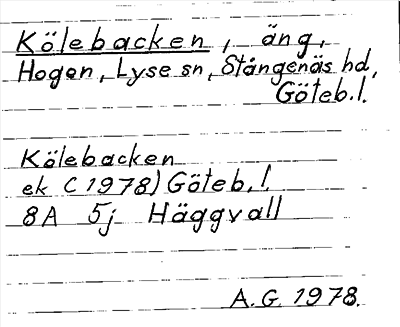 Kölebacken, äng,
Hogen, Lyse sn, Stångenäs hd,
Göteb.l.
Kölebacken
ek (1978) Göteb.l.
8A 5j Häggvall
A.G. 1978.